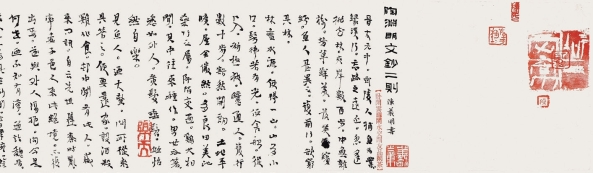 陶淵明文鈔二則
晉太元中武陵人捕魚為業
緣溪行忘路之遠近忽逢
桃花林夾岸數百步中無雜
樹芳草鮮美落英繽
紛漁人甚異之復前行欲窮
其林
林盡水源便得一山山有小
口髣髴若有光便舍船從
口入初極狹纔通人復行
數十步豁然開朗土地平
曠屋舍儼然有良田美池
桑竹之屬阡陌交通雞犬相
聞其中往來種作男女衣著
悉如外人黃髮垂髫並怡
然自樂
見漁人迺大驚問所從來
具答之便要還家設酒殺
雞作食村中聞有此人咸
來問訊自云先世避秦時亂
率妻子邑人來此絕境不復
出焉遂與外人間隔問今是
何世乃不知有漢無論魏晉